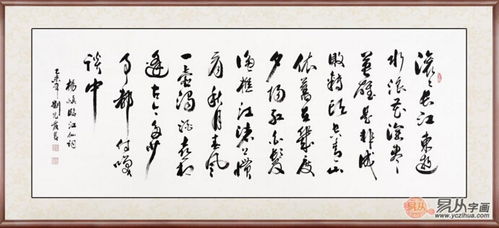 滚滚长江東逝
水浪花淘尽
英雄是非成
败转头空青山
依旧在几度
夕阳红白髮
渔樵江渚上惯
看秋月春风
一壶濁酒喜相
逢古今多少
事都付笑
谈中
楊慎临江仙詞
易从字画
www.yczihua.com